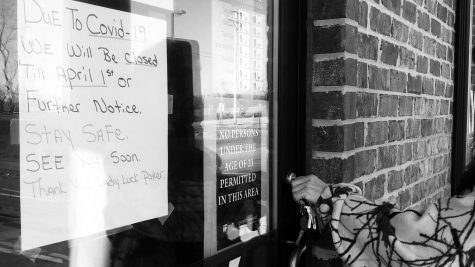 Due To Covid-19
We Will Be closed
Till April 1st or
Further Notice.
Stay Safe.
SEE You Soon.
Thank You Lady Luck Poker.
NO PERSONS
UNDER THE
AGE OF 21
PERMITTED
IN THIS AREA